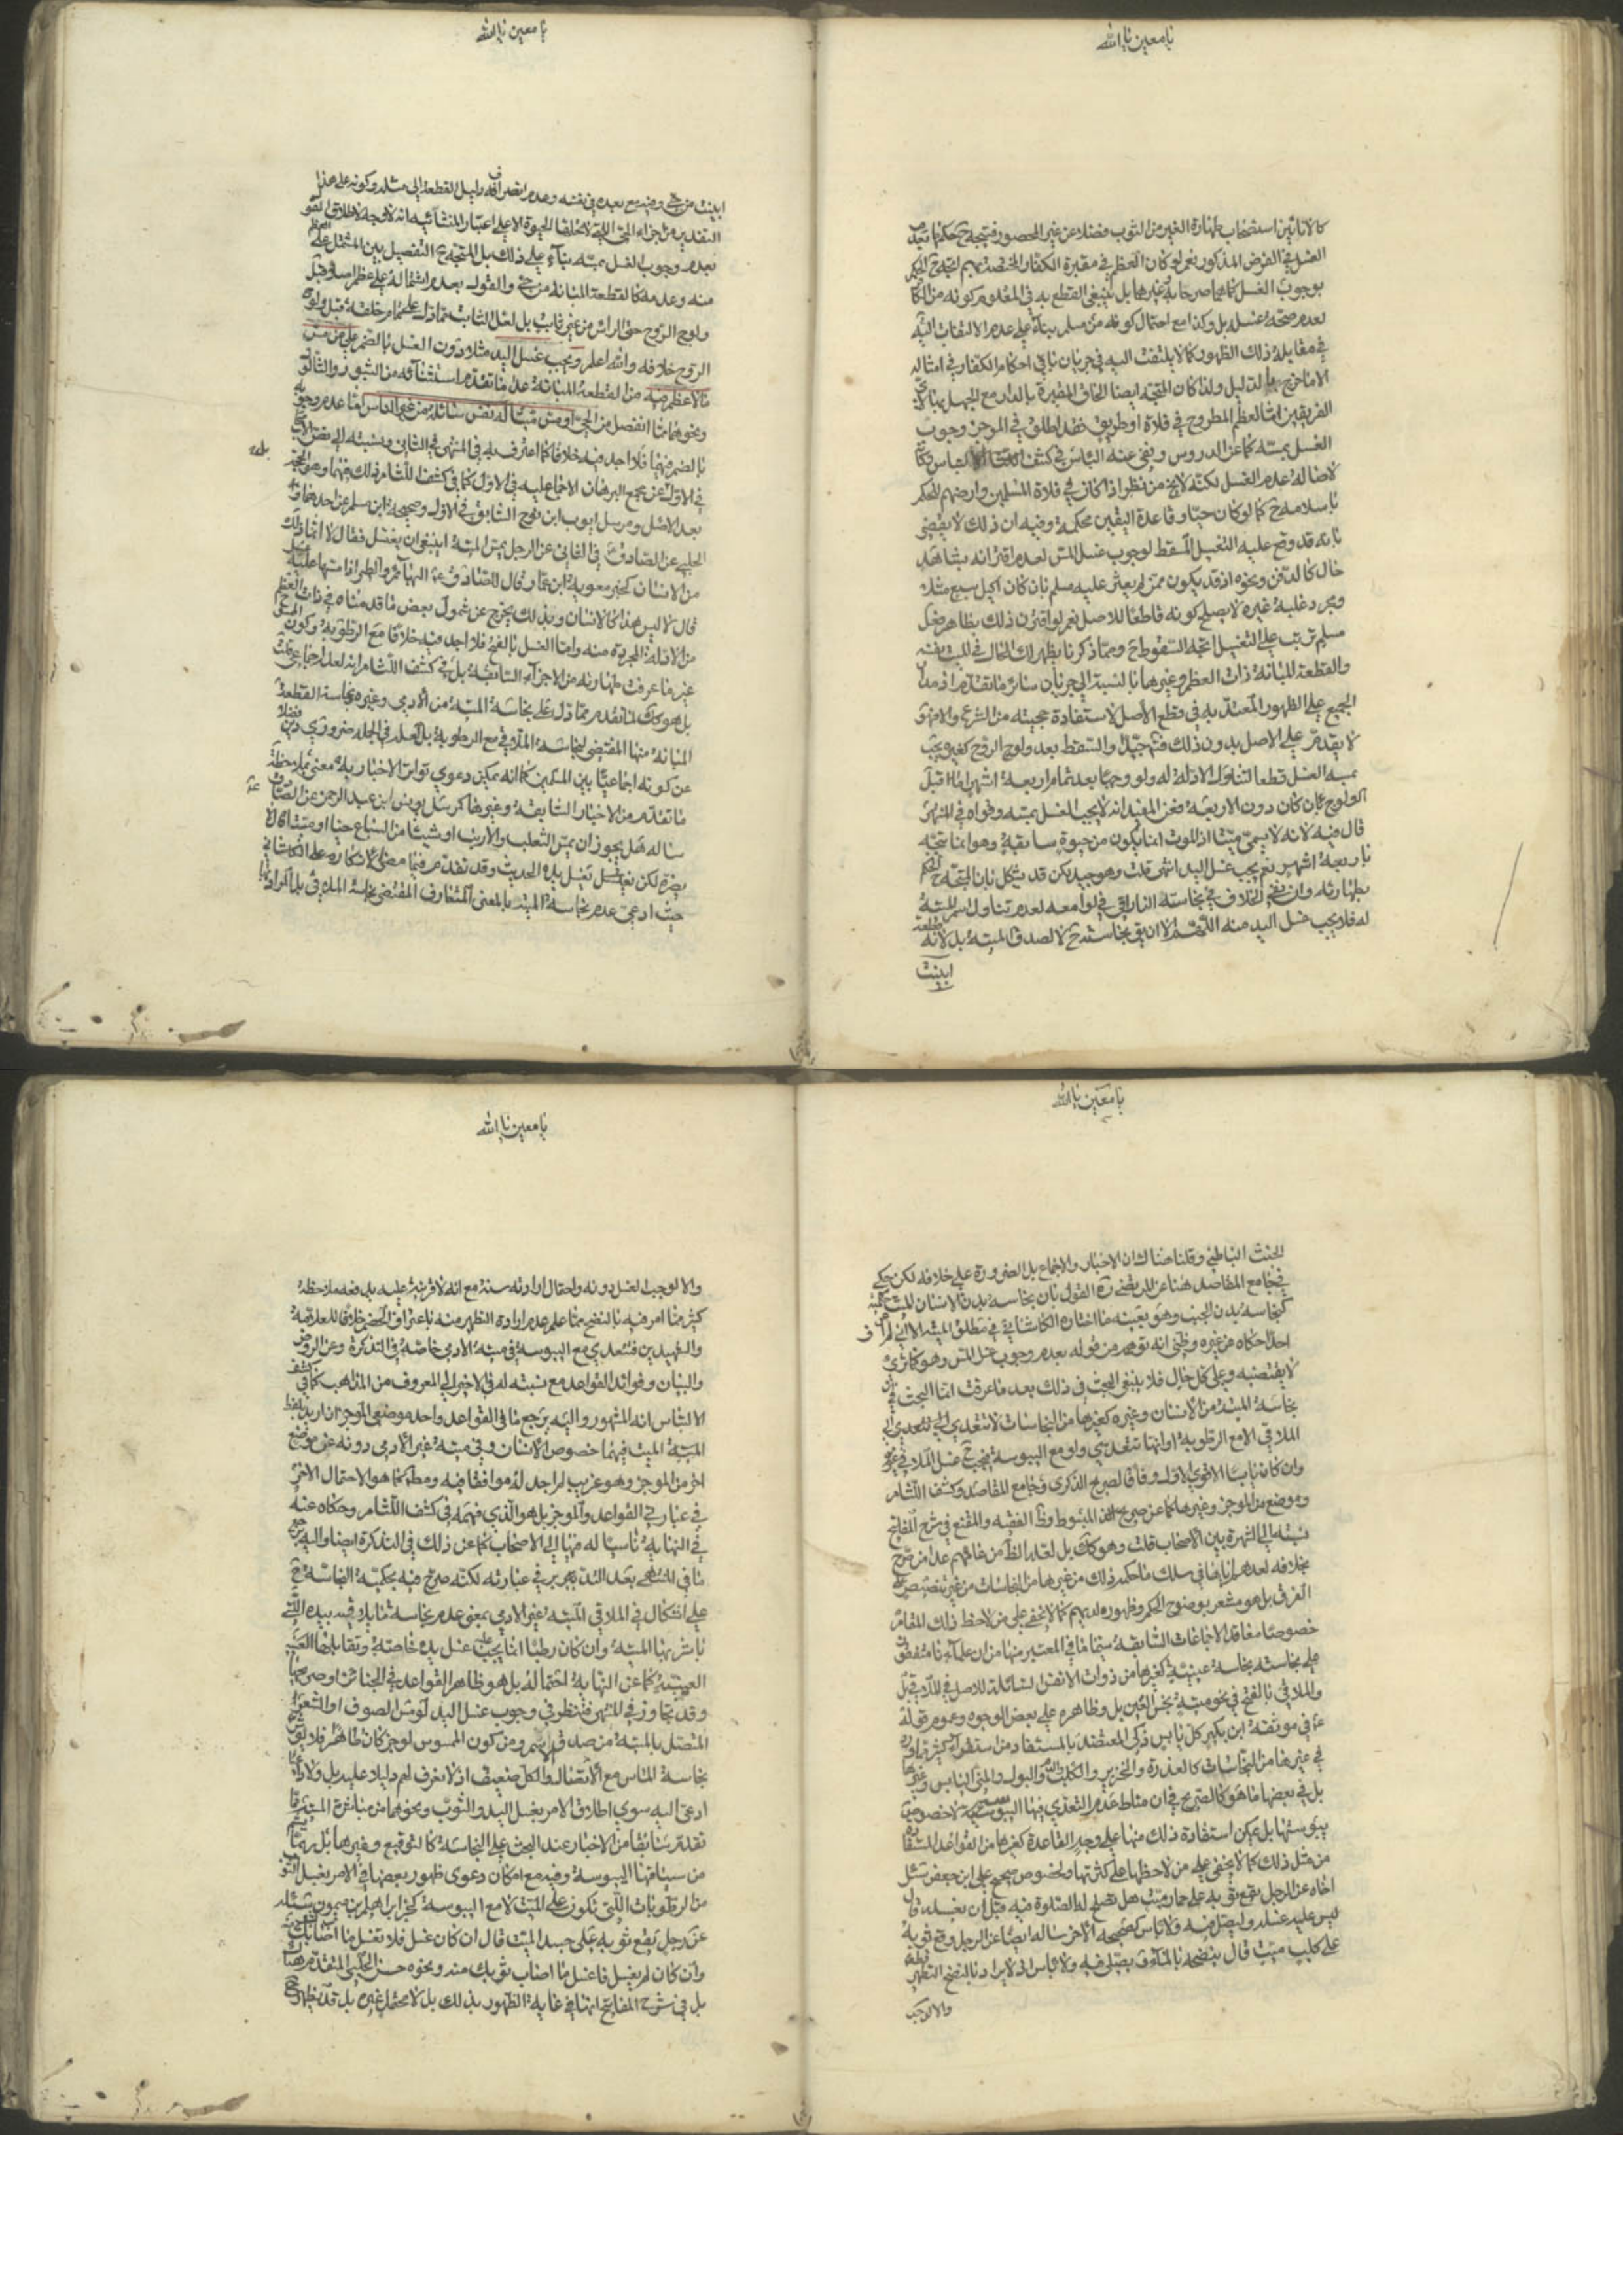 يا معين يا الله
كالاناءين استصحاب طهارة الغير من الثوب فضلا عن غير المحصور فيتجه ح حكمنا بعدم
الغسل في الفرض المذكور نعم لو كان العظم في مقبرة الكفار المختصة بهم اتجه ح الحكم
بوجوب الغسل كما هما صرحا به غيرهما بل ينبغي القطع به في المعلوم كونه من الكفار
لعدم صحة غسله بل وكذا مع احتمال كونه من مسلم بناء على عدم الالتفات اليه
في مقابلة ذلك الظهور كما لا يلتفت اليه في جريان باقي احكام الكفار في امثاله
الا ما خرج بالدليل ولذا كان المتجه ايضا الحاق المقبرة بالدار مع الجهل بتناكر
الفريقين اما العظم المطروح في فلاة او طريق فقد اطلق في الموجز وجوب
الغسل بمسه كما عن الدروس ونفى عنه الباس في كشف الالتباس وكانه
لاصالة عدم الغسل لكنه لا يخ من نظر اذا كان في فلاة المسلمين وارضهم للحكم
باسلامه ح كما لو كان حيا وقاعدة اليقين محكمة وفيه ان ذلك لا يقضي
بانه قد وقع عليه التغسيل المسقط لوجوب غسل المس لعدم اقترانه بشاهد
حال كالدفن ونحوه اذ قد يكون ممن لم يعثر عليه مسلم بان كان اكيل سبع مثلا
ومجرد غلبة غيره لا يصلح كونه قاطعا للاصل نعم لو اقترن ذلك بظاهر فعل
مسلم ترتب على التغسيل اتجه السقوط ح ومما ذكرنا يظهر لك الحال في الميت نفسه
والقطعة المبانة ذات العظم وغيرها بالنسبة الى جريان سائر ما تقدم اذ مدار
الجميع على الظهور المعتد به في قطع الاصل لاستفادة حجيته من الشرع والا فهو
لا يقدم على الاصل بدون ذلك فتامل جيدا والسقط بعد ولوج الروح كغيره يجب
بمسه الغسل قطعا لتناول الادلة له ولو وجها بعد تمام اربعة اشهر اما قبل
الولوج بان كان دون الاربعة فعن المفيد انه لا يجب الغسل بمسه وقواه في المنتهى
قال فيه لانه لا يسمى ميتا اذ الموت انما يكون من حيوة سابقة وهو انما يتجه
باربعة اشهر نعم يجب غسل اليد انتهى قلت وهو جيد لكن قد يشكل بان المتجه ح الحكم
بطهارته وان نفى الخلاف في نجاسته النراقي في لوامعه لعدم تناول اسم الميتة
له فلا يجب غسل اليد منه اللهم الا ان يق نجاسته ح لا لصدق الميتة بل لانه قطعة
ابينت
يا معين يا الله
ابينت من حي وفيه مع بعده في نفسه وعدم انصراف دليل القطعة الى مثله وكونه على هذا
التقدير من اجزاء الحي التي لا تحلها الحيوة الا على اعتبار المنشائية انه لا وجه لاطلاق القول
بعدم وجوب الغسل بمسه بناء على ذلك بل المتجه ح التفصيل بين المشتمل على العظم
منه وعدمه كالقطعة المبانة من حي والقول بعدم اشتماله على عظم اصلا قبل
ولوج الروح حتى الراس من غير ثابت بل لعل الثابت مما ذكر علماء خلقة قبل ولوج
الروح خلافه والله اعلم ويجب غسل اليد مثلا دون الغسل بالضم على من مس
ما لا عظم فيه من القطعة المبانة عدا ما تقدم استثناؤه من البثور والثالول
ونحوهما مما انفصل من الحي او مس ميتا له نفس سائلة من غير الناس اما عدم وجوبه
بالضم فيهما فلا اجد فيه خلافا كما اعترف به في المنتهى في الثاني ونسبته الى بعض الاصحاب
في الاول عن مجمع البرهان الاجماع عليه في الاول كما في كشف اللثام ذلك فيهما وهو الحجة
بعد الاصل ومرسل ايوب ابن نوح السابق في الاول وصحيحة ابن مسلم عن احدهما و
الحلبي عن الصادق ع في الثاني عن الرجل يمس الميتة اينبغي ان يغتسل فقال لا انما ذلك
من الانسان كخبر معوية ابن عمار قال للصادق ع البهائم والطير اذا مسها عليه غسل
قال لا ليس هذا كالانسان وبذلك يخرج عن شمول بعض ما قدمناه في ذات العظم
من الادلة المجردة منه واما الغسل بالفتح فلا اجد فيه خلافا مع الرطوبة وكون المس
غير ما عرفت طهارته من الاجزاء السابقة بل في كشف اللثام انه لعله اجماعي قلت
بل هو كك لما تقدم مما دل على نجاسة الميتة من الادمي وغيره نجاسة القطعة
المبانة منها المقتضي لنجاسة الملاقي مع الرطوبة بل لعله في الجملة ضروري دين فضلا
عن كونه اجماعيا بين المسلمين كما انه يمكن دعوى تواتر الاخبار به معنى بملاحظة
ما تقدم من الاخبار السابقة وغيرها كمرسل يونس ابن عبد الرحمن عن الصادق ع
ساله هل يجوز ان يمس الثعلب والارنب او شيئا من السباع حيا او ميتا قال لا
يضره لكن يغسل يده الحديث وقد تقدم فيما مضى الانكار على الكاشاني
حيث ادعى عدم نجاسة الميتة بالمعنى المتعارف المقتضي نجاسة الملاقي بل المراد بها
يا معين يا الله
الخبث الباطني وقلنا هناك ان الاخبار والاجماع بل الضرورة على خلافه لكن حكي
في جامع المقاصد هنا عن المرتضى ره القول بان نجاسة بدن الانسان الميت حكمية
كنجاسة بدن الجنب وهو بعينه ما اختاره الكاشاني في مطلق الميتة الا اني لم اعرف
احدا حكاه من غيره وظني انه توهمه من قوله بعدم وجوب غسل المس وهو كما ترى
لا يقتضيه وعلى كل حال فلا ينبغي البحث في ذلك بعد ما عرفت انما البحث في ان
نجاسة الميتة من الانسان وغيره كغيرها من النجاسات لا تتعدى الى
الملاقي الا مع الرطوبة او انها تتعدى ولو مع اليبوسة فيجب ح غسل الملاقي من غيره
وان كانا يابسا الاقوى الاول وفاقا لصريح الذكرى وجامع المقاصد وكشف اللثام
وموضع من الموجز وغيرها كما عن صريح المبسوط وظ الفقيه والمقنع في شرح المفاتيح
نسبته الى الشهرة بين الاصحاب قلت وهو كك بل لعله الظ من غالبهم عدا من صرح
بخلافه لعدهم اياها في سلك ما حكمه ذلك من غيرها من النجاسات من غير تنصيص على
الفرق بل هو مشعر بوضوح الحكم وظهوره لديهم كما لا يخفى على من لاحظ ذلك المقام
خصوصا معاقد الاجماعات السابقة سيما ما في المعتبر منها من ان علماءنا متفقون
على نجاسته نجاسة عينية كغيرها من ذوات الانفس السائلة للاصل في الملاقي بل
والملاقى بالفتح في نحو ميتة نجس العين بل وظاهره على بعض الوجوه وعموم قوله
ع في موثقة ابن بكير كل يابس ذكي المعتضد بالمستفاد من استقراء كثير مما ورد
في غيرها من النجاسات كالعذرة والخنزير والكلب والبول والمني اليابس وغيرها
بل في بعضها ما هو كالصريح في ان مناط عدم التعدي فيها اليبوسة لا خصوص
يبوستها بل يمكن استفادة ذلك منها على وجه القاعدة كغيرها من القواعد المستفادة
من مثل ذلك كما لا يخفى على من لاحظها على كثرتها ولخصوص صحيح علي ابن جعفر سئل
اخاه عن الرجل يقع ثوبه على حمار ميت هل تصلح له الصلوة فيه قبل ان يغسله قال
ليس عليه غسله وليصل فيه ولا باس كصحيحه الاخر ساله ايضا عن الرجل وقع ثوبه
على كلب ميت قال ينضحه بالماء ويصلي فيه ولا باس اذ لا يراد بالنضح التطهير قطعا
والا لوجب
يا معين يا الله
والا لوجب الغسل دونه واحتمال ارادته منه مع انه لا قرينة عليه يدفعه ملاحظة
كثير مما امر فيه بالنضح مما علم عدم ارادة التطهير منه باعتراف الخصم خلافا للعلامة
والشهيدين فتتعدى مع اليبوسة في ميتة الادمي خاصة في التذكرة وعن الروض
والبيان وفوائد القواعد مع نسبته له في الاخير الى المعروف من المذاهب كما في كشف
الالتباس انه المشهور واليه يرجع ما في القواعد واحد موضعي الموجز ان اريد بلفظ
الميتة الميت فيهما خصوص الانسان وفي ميتة غير الادمي دونه عن موضع
اخر من الموجز وهو غريب لم اجد له موافقا فيه ومطلقا كما هو الاحتمال الاخر
في عبارتي القواعد والموجز بل هو الذي فهمه في كشف اللثام وحكاه عنه
في النهاية ناسبا له فيها الى الاصحاب كما عن ذلك في التذكرة ايضا واليه يرجع
ما في المنتهى بعد التدبر في عبارته لكنه صرح فيه بحكمية النجاسة ح
على اشكال في الملاقي الميتة غير الادمي بمعنى عدم نجاسة ما يلاقيه بيده التي
باشر بها الميتة وان كان رطبا انما يجب عليه غسل يده خاصة وتقابلها العينية
العينية كما عن النهاية احتماله بل هو ظاهر القواعد في الجنائز او صريحها
وقد تجاوز في المنتهى فتنظر في وجوب غسل اليد لو مس الصوف او الشعر
المتصل بالميتة من صدق الاسم ومن كون الممسوس لو جز كان طاهرا فلا تؤثر
نجاسة الماس مع الاتصال والكل ضعيف اذ لا نعرف لهم دليلا عليه بل ولا داع
ادعي اليه سوى اطلاق الامر بغسل اليد والثوب ونحوهما من مباشرة الميت مما
تقدم سابقا من الاخبار عند البحث على النجاسة كالتوقيع وغيرها بل ربما يتم
من سياقها اليبوسة وفيه مع امكان دعوى ظهور بعضها في الامر بغسل الثوب
من الرطوبات التي تكون على الميت لا مع اليبوسة كخبر ابراهيم ابن ميمون سئله
عن رجل يقع ثوبه على جسد الميت قال ان كان غسل فلا تغسل ما اصاب ثوبك منه
وان كان لم يغسل فاغسل ما اصاب ثوبك منه ونحوه حسن الحلبي المتقدم هناك
بل في شرح المفاتيح انها في غاية الظهور بذلك بل لا يحتمل غيره بل قد يظهر